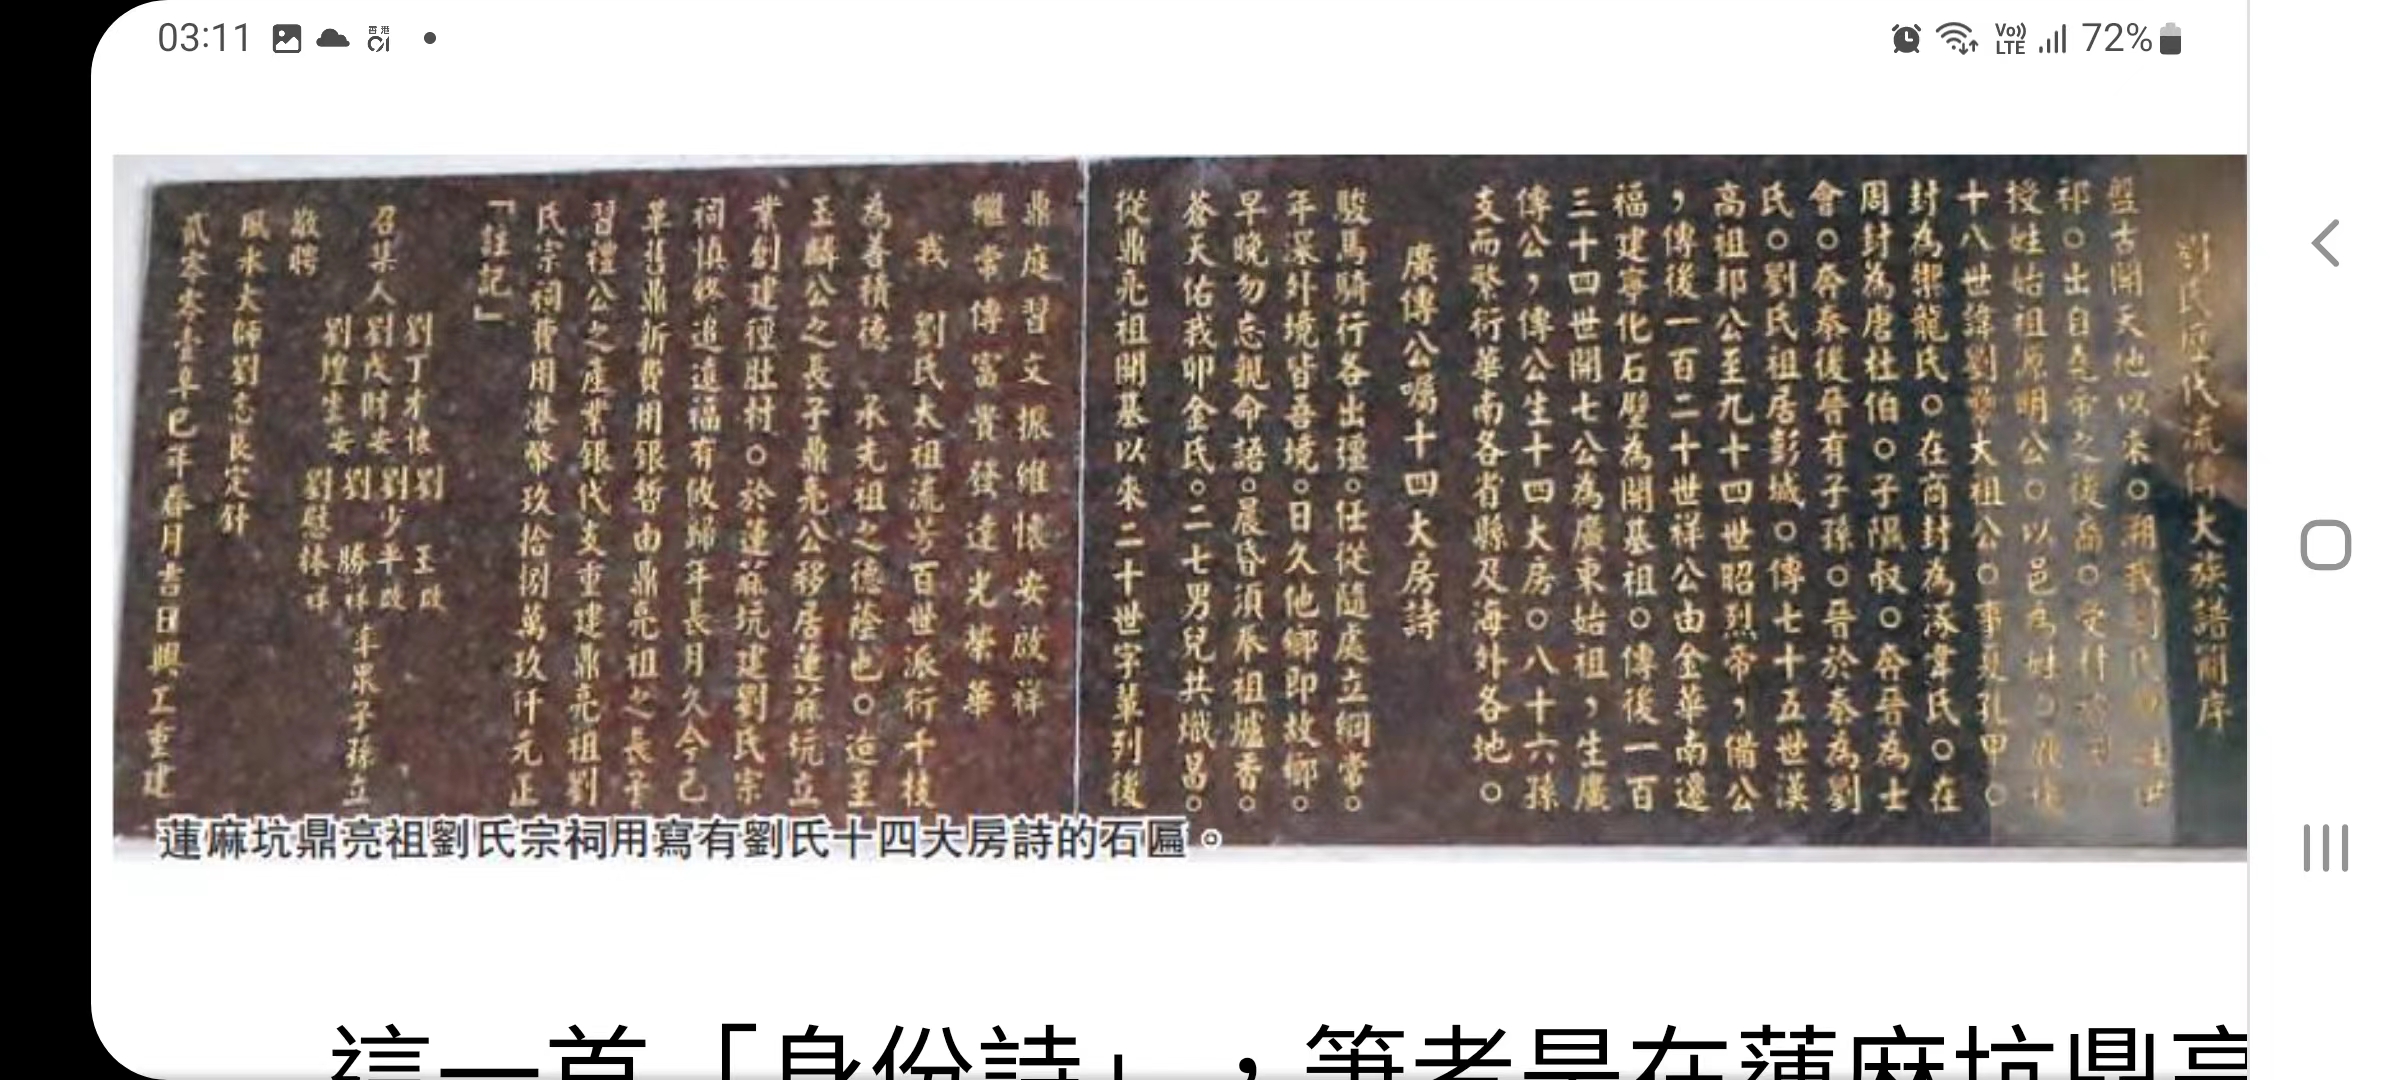 03:11
Vo)) LTE 72%
劉氏歷代流傳大族譜簡序
盤古開天地以來。溯我劉氏
祁。出自堯帝之後裔。受
授姓始祖原明公。以邑為姓。
十八世諱劉 大祖公。事夏孔甲。
封為禦龍氏。在商封為豕韋氏。在
周封為唐杜伯。子隰叔。奔晉為士
會。奔秦後晉有子孫。晉於秦為劉
氏。劉氏祖居彭城。傳七十五世漢
高祖邦公至九十四世昭烈帝,備公
,傳後一百二十世祥公由金華南遷
福建寧化石壁為開基祖。傳後一百
三十四世開七公為廣東始祖,生廣
傳公,傳公生十四大房。八十六孫
支而繁衍華南各省縣及海外各地。
廣傳公囑十四大房詩
駿馬騎行各出疆。任從隨處立綱常。
年深外境皆吾境。日久他鄉即故鄉。
早晚勿忘親命語。晨昏須奉祖爐香。
蒼天佑我卯金氏。二七男兒共熾昌。
從鼎亮祖開基以來二十世字輩列後
鼎庭習文振維懷安啟祥
繼常傳富貴發達光榮華
我 劉氏太祖流芳百世派衍千枝
為善積德 承先祖之德蔭也。迨至
玉麟公之長子鼎亮公移居蓮蔴坑立
業創建徑肚村。於蓮蔴坑建劉氏宗
祠慎終追遠福有攸歸年長月久今己
革舊鼎新費用銀暫由鼎亮祖之長子
習禮公之產業銀代支重建鼎亮祖劉
氏宗祠費用港幣玖拾捌萬玖仟元正
『註記』
召集人 劉丁才懷 劉玉啟
劉戊財安 劉少平啟
劉煌生安 劉勝祥
劉慰棒祥
率眾子孫立
敬聘
風水大師劉志良定針
貳零零壹年辛巳年春月吉日興工重建
蓮麻坑鼎亮祖劉氏宗祠用寫有劉氏十四大房詩的石匾。
這一首「身份詩」,筆者是在蓮麻坑鼎亮